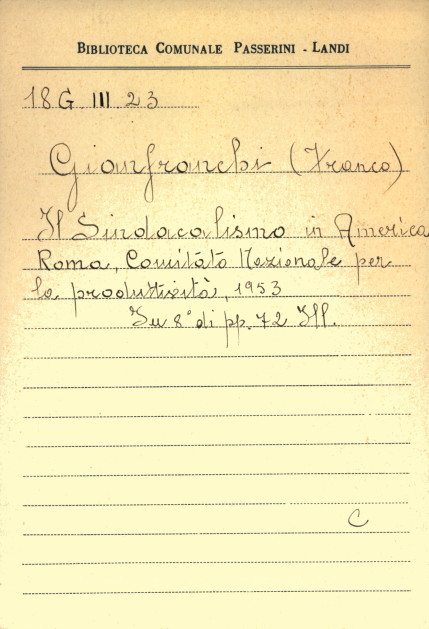 BIBLIOTECA COMUNALE PASSERINI - LANDI
18 G. III. 23
Gianfranchi (Franco)
Il Sindacalismo in America
Roma, Comitato Nazionale per
la produttività, 1953
In 8° di pp. 72 Ill.
C